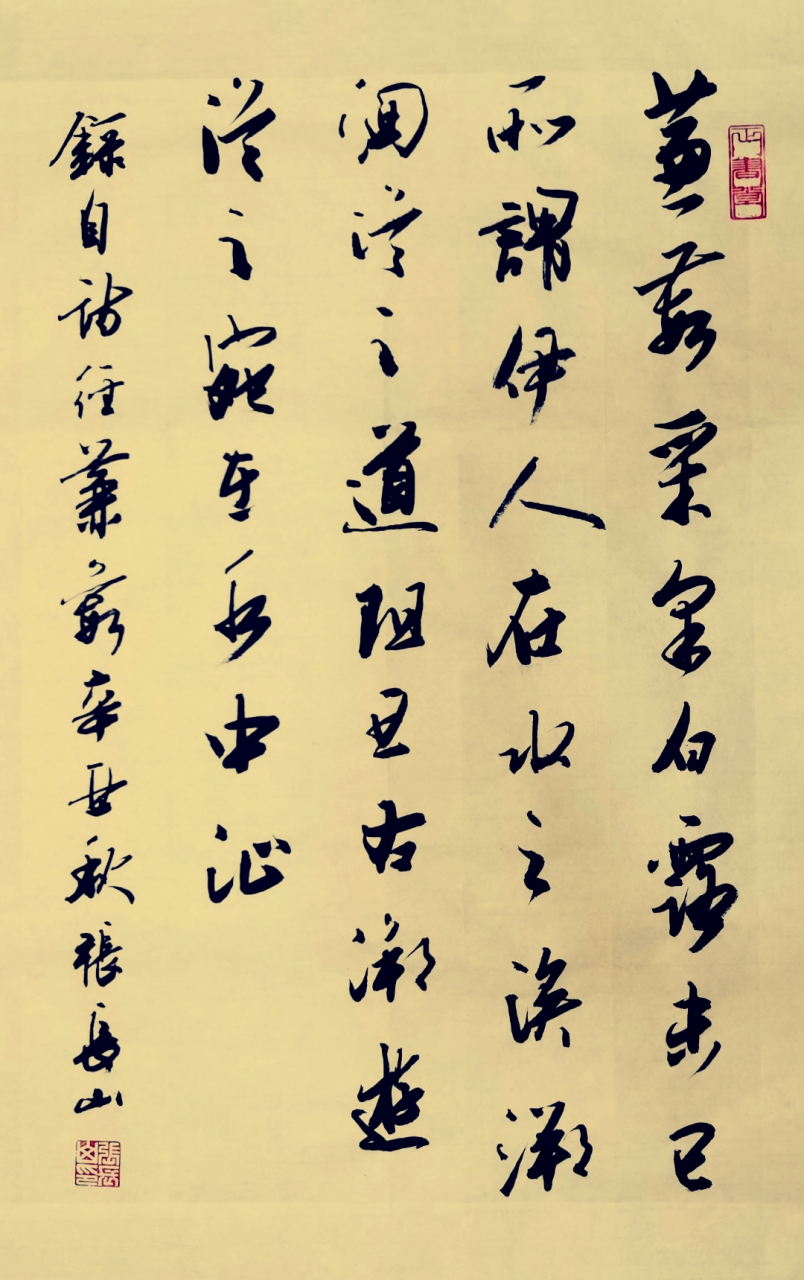 蒹葭采采白露未已
所謂伊人在水之涘溯
洄從之道阻且右溯遊
從之宛在水中沚
錄自詩經蒹葭辛丑秋張長山